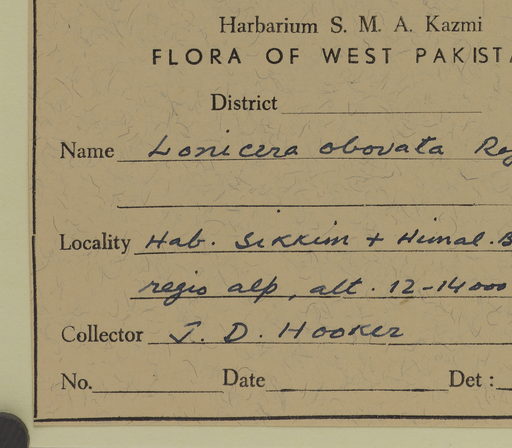 Harbarium S. M. A. Kazmi
FLORA OF WEST PAKIST
District
Name Lonicera obovata
Locality Hab. Sikkim + Himal. B
regio alp, alt. 12-14000
Collector J. D. Hooker
No. Date Det :